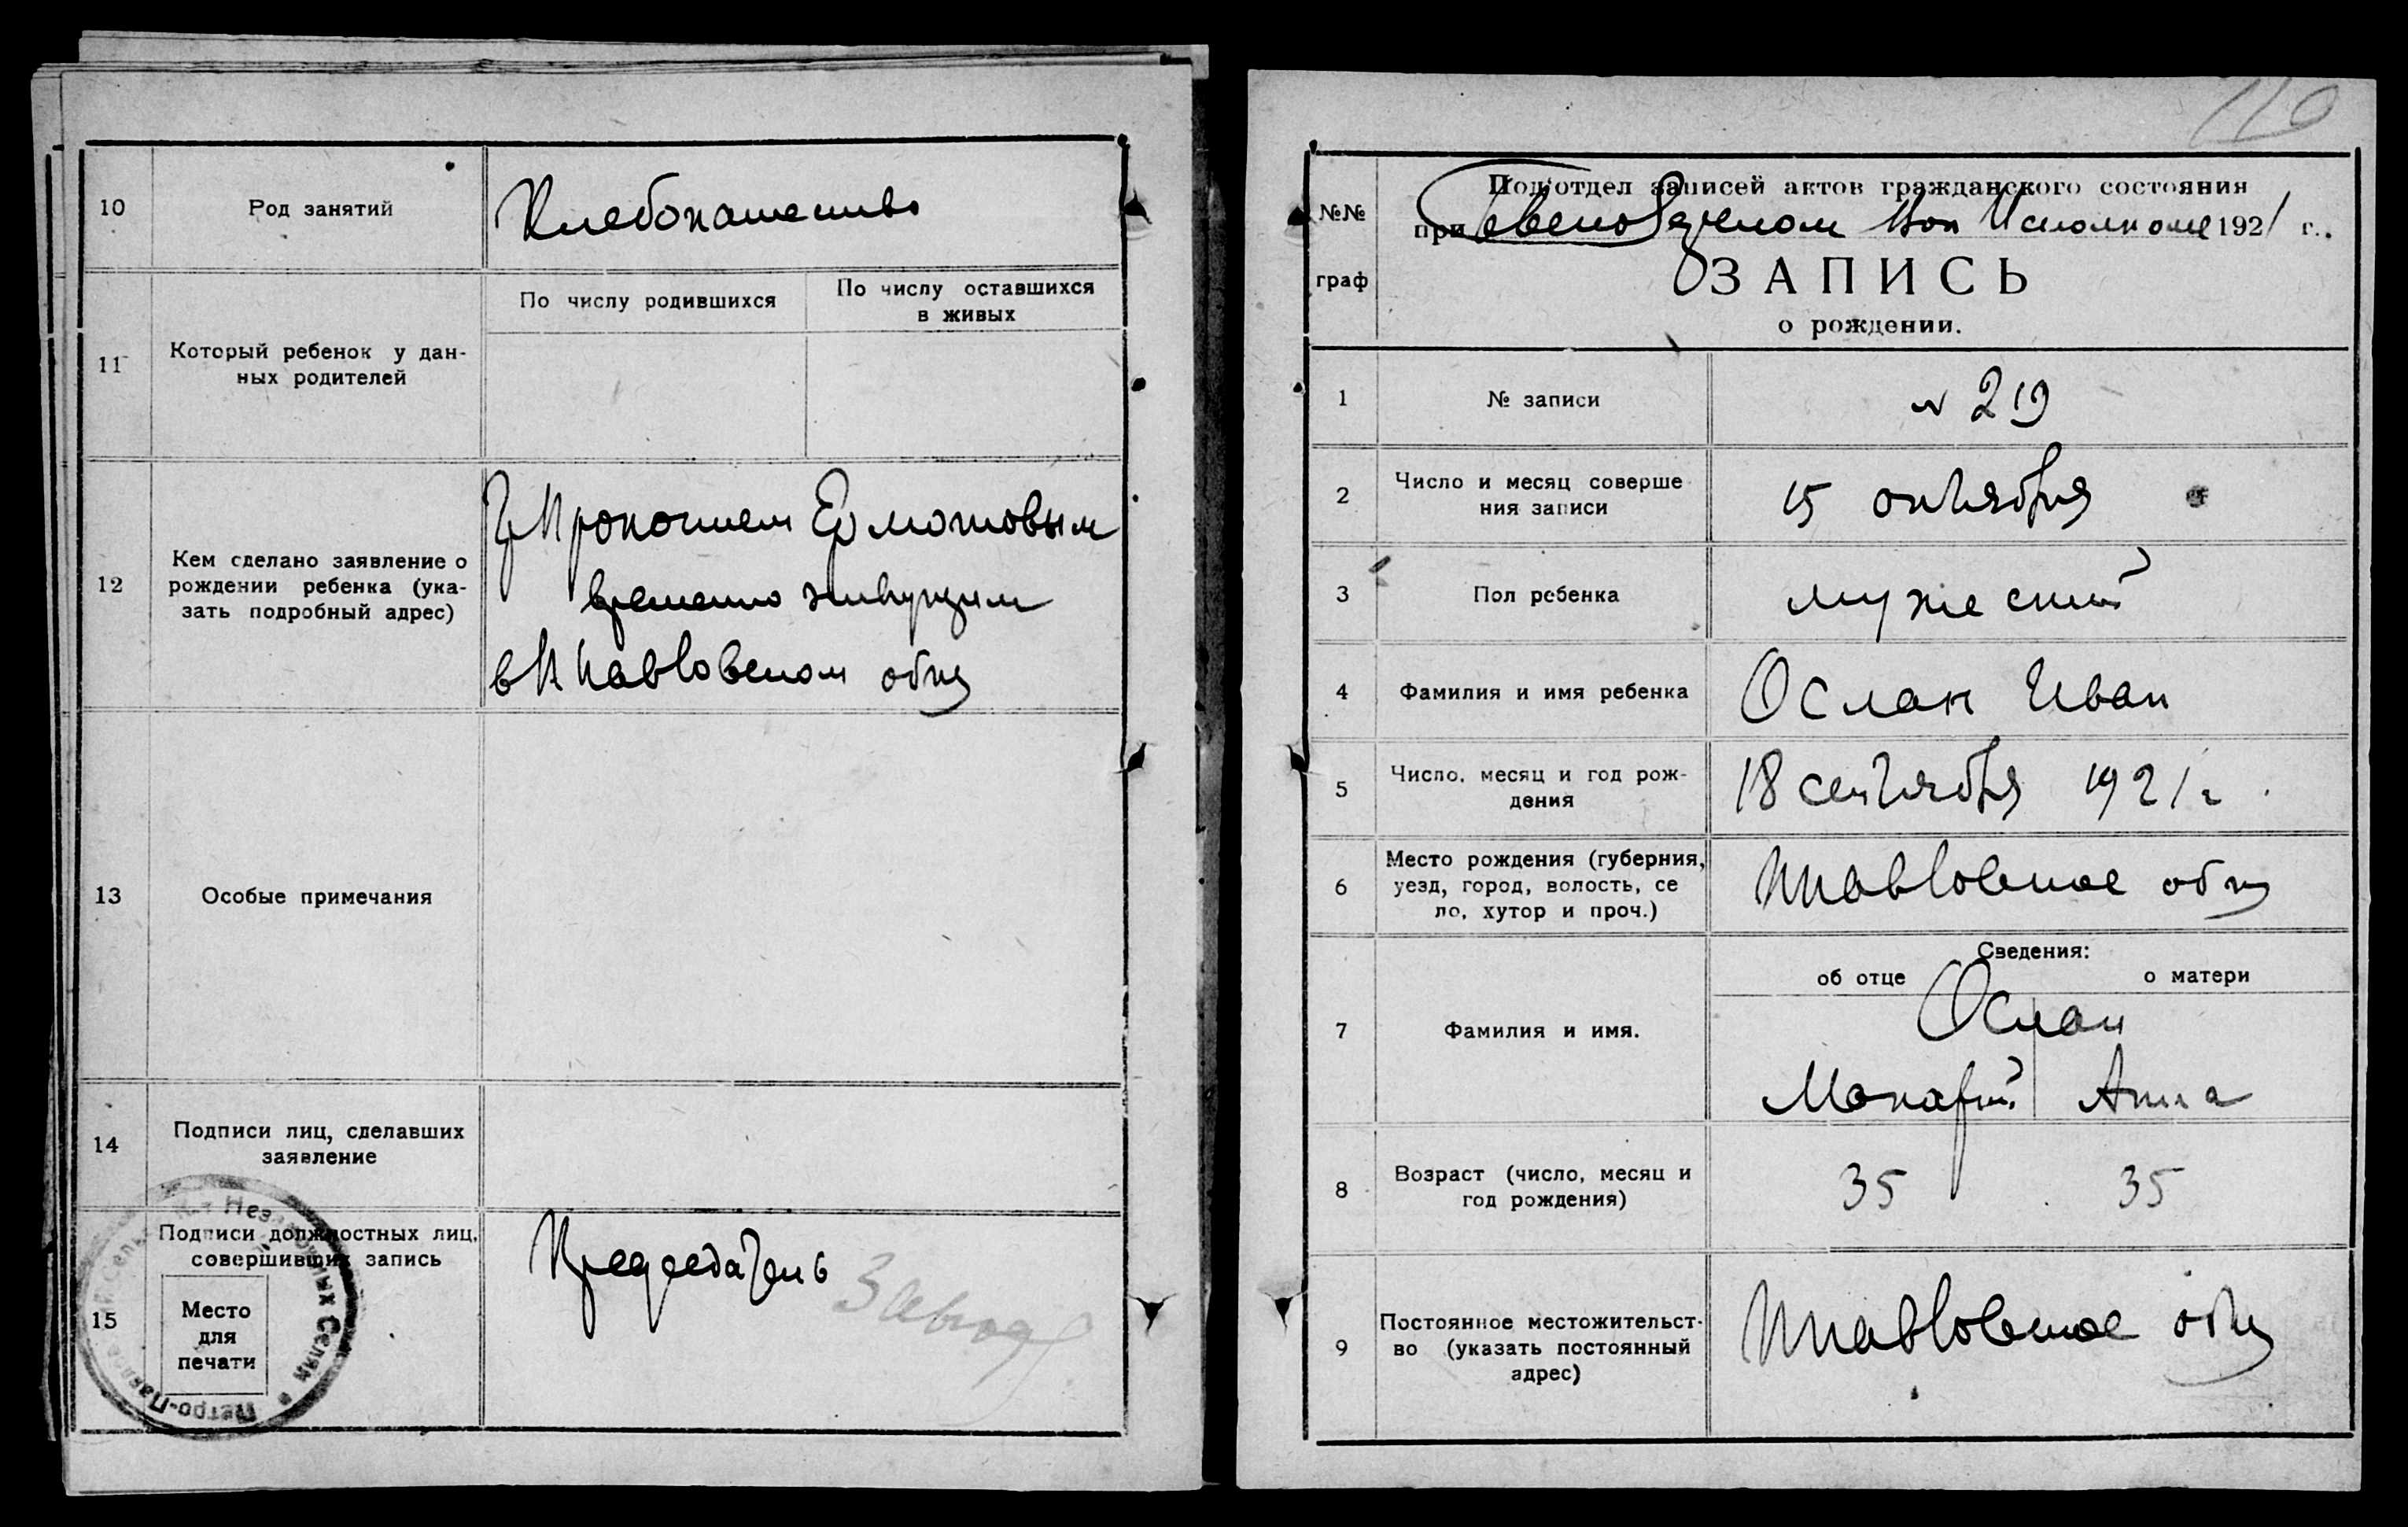 10
Род занятий
Хлебопашество
11
Который ребенок у дан-
ных родителей
По числу родившихся
По числу оставшихся
в живых
12
Кем сделано заявление о
рождении ребенка (ука-
зать подробный адрес)
Гр Прокопием Ермоловым
временно живущим
в П павловском общ
13
Особые примечания
14
Подписи лиц, сделавших
заявление
15
Подписи должностных лиц,
совершивших запись
Место
для
печати
Председатель
Петро-Павлов
Селян
110
№№
граф
Под'отдел записей актов гражданского состояния
при Вол Исполкоме 1921 г.
ЗАПИСЬ
о рождении.
1
№ записи
№ 219
2
Число и месяц соверше
ния записи
15 октября
3
Пол ребенка
мужеский
4
Фамилия и имя ребенка
Ослан Иван
5
Число, месяц и год рож-
дения
18 сентября 1921 г
6
Место рождения (губерния,
уезд, город, волость, се
ло, хутор и проч.)
Ппавловское общ
Сведения:
об отце
о матери
7
Фамилия и имя.
Ослан
Макарий Анна
8
Возраст (число, месяц и
год рождения)
35 35
9
Постоянное местожительст-
во (указать постоянный
адрес)
Ппавловское общ